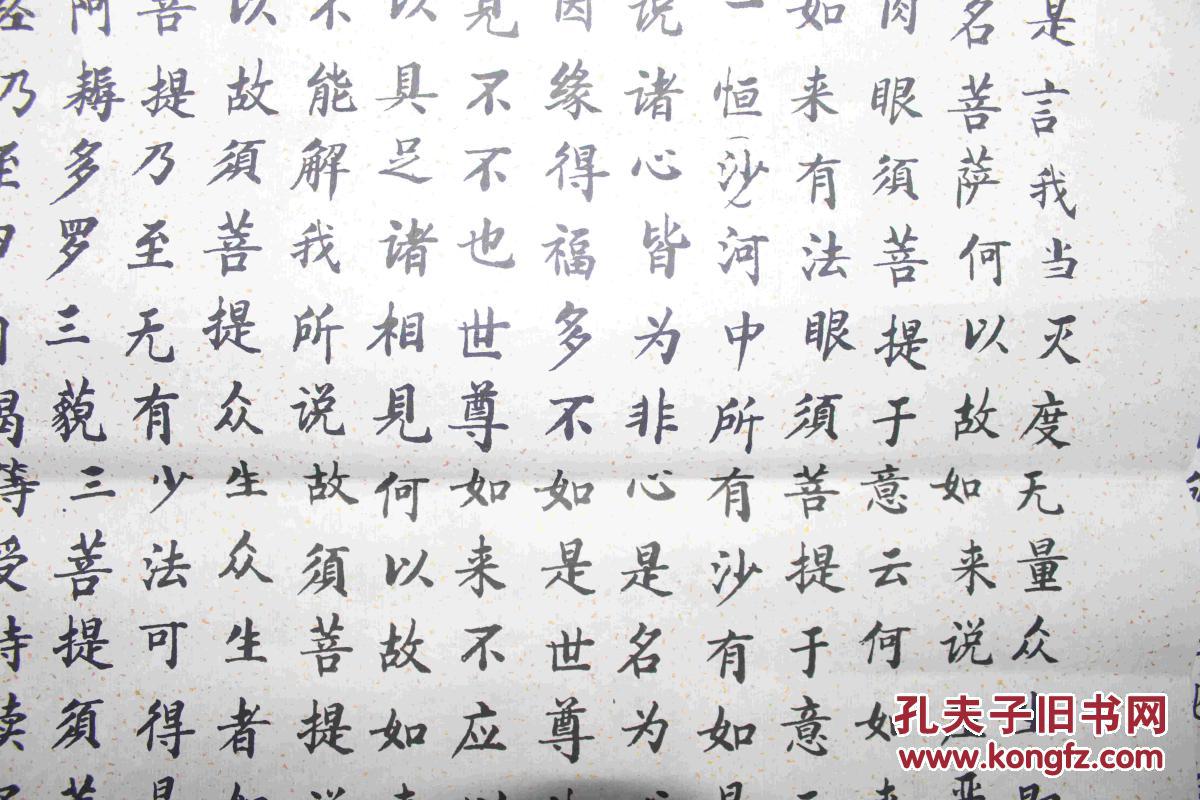 是言我当灭度无量众当
名菩萨何以故如来说庄严
肉眼須菩提于意云何如来
如来有法眼須菩提于意云
一恒(沙)河中所有沙有如是
说诸心皆为非心是名为心
因缘得福多不如是世尊
見不不也世尊如来不应以
以具足诸相見何以故如来
不能解我所说故須菩提说
以故須菩提众生众生者如
菩提乃至无有少法可得是
阿耨多罗三藐三菩提須菩
经乃至四句偈等受持读
孔夫子旧书网
www.kongfz.com